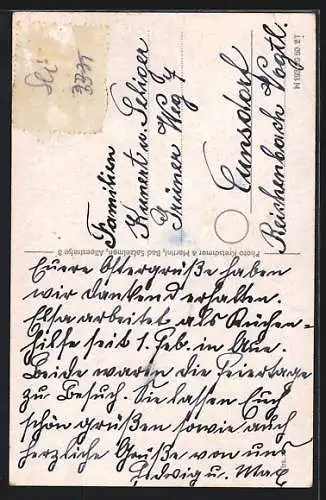 Familien
Kunert u. Schiver
Grüner Weg 7
Cunsdorf
Reichenbach Vogtl.
Photo Kretschmar & Martini, Bad Salzelmen, Alleestraße 3
Euere Ostergrüße haben
wir dankend erhalten.
Elsa arbeitet als Küchen-
hilfe seit 1. Feb. in Aue.
Beide waren die Feiertage
zu Besuch. Sie lassen Euch
schön grüßen sowie auch
herzliche Grüße von uns
u. Max